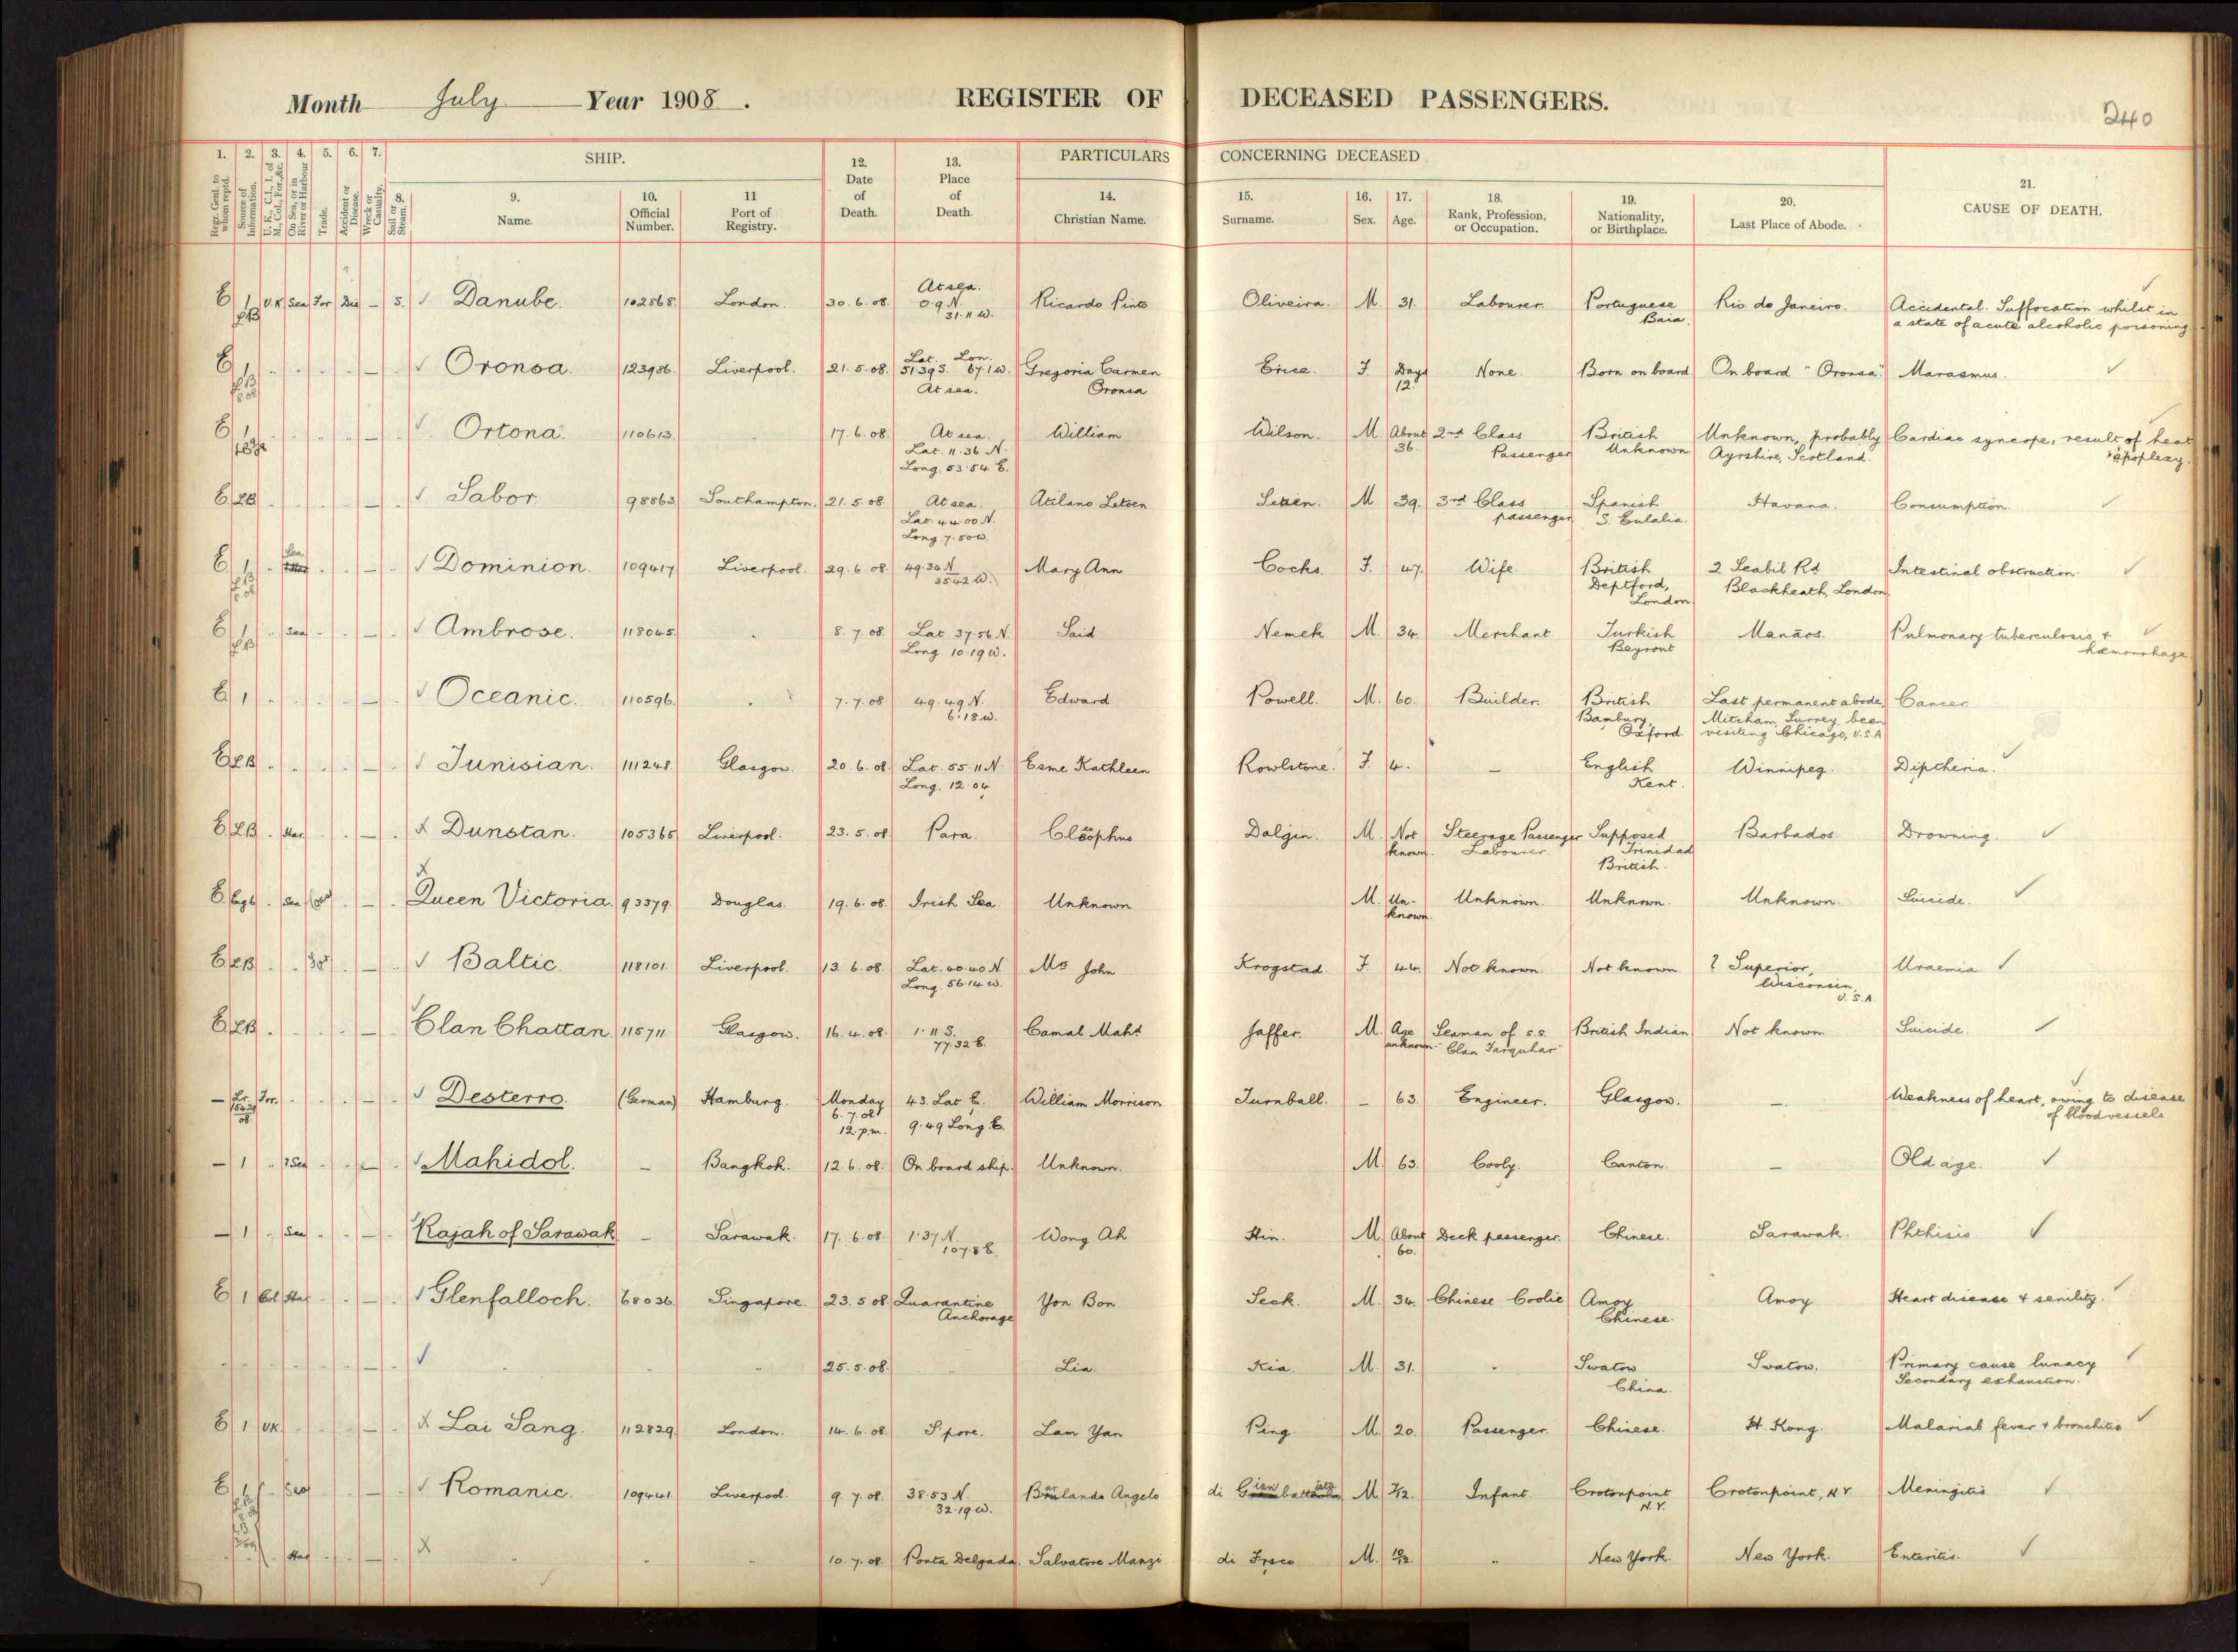 Month July Year 1908. REGISTER OF DECEASED PASSENGERS.
240
1. 2. 3. 4. 5. 6. 7. SHIP. 12. 13. PARTICULARS CONCERNING DECEASED 21.
Regr. Genl. to whom reptd. Source of Information. U.K., C.I., I. of M., Col., For., &c. On Sea, or in River or Harbour Trade. Accident or Disease. Wreck or Casualty. 8. Sail or Steam. Date of Death. Place of Death. CAUSE OF DEATH.
9. Name. 10. Official Number. 11 Port of Registry. 14. Christian Name. 15. Surname. 16. Sex. 17. Age. 18. Rank, Profession, or Occupation. 19. Nationality, or Birthplace. 20. Last Place of Abode.
E 1 U.K Sea For Dis – S. Danube. 102868. London. 30. 6. 08. At sea. 0.9 N. 31.11 W. Ricardo Pinto Oliveira. M. 31. Labourer. Portuguese Baia. Rio do Janeiro. Accidental. Suffocation whilst in
a state of acute alcoholic poisoning
E 1 – Oronsa. 123986. Liverpool. 21. 5. 08. Lat. Lon. 51.39 S. 67.1 W. At sea. Gregoria Carmen Oronsa Erice. F Days 12. None. Born on board On board "Oronsa" Marasmus.
E 1 – Ortona. 110613. " 17. 6. 08. At sea. Lat. 11.36 N. Long. 53.54 E. William Wilson. M. About 36 2nd Class Passenger British Unknown Unknown, probably Ayrshire, Scotland. Cardiac syncope, result of heat
apoplexy.
E LB – Sabor. 98863 Southampton. 21. 5. 08 At sea. Lat. 44.00 N. Long. 7.50 W. Atilano Letsen M 39. 3rd Class passenger Spanish S. Eulalia. Havana. Consumption.
E 1 Sea – Dominion. 109417 Liverpool. 29. 6. 08. 49.34 N 35.42 W. Mary Ann Cocks. F. 47. Wife British Deptford, London. 2 Seabil Rd Blackheath, London Intestinal obstruction.
E 1 Sea – Ambrose. 118045 " 8. 7. 08. Lat 37.56 N. Long 10.19 W. Said Nemek M. 34. Merchant Turkish Beyrout Manãos. Pulmonary tuberculosis +
hæmorrhage
E 1 – Oceanic. 110596. " 7. 7. 08 49.49 N. 6.18 W. Edward Powell. M. 60. Builder. British Bambury, Oxford. Last permanent abode, Mitcham, Surrey, been visiting Chicago, U.S.A Cancer.
E LB – Tunisian. 111248. Glasgow. 20. 6. 08. Lat. 55.11 N. Long. 12.04 Esme Kathleen Rowlstone. F. 4. – English Kent. Winnipeg. Diptheria.
E LB Har – X Dunstan. 105365 Liverpool. 23. 5. 08 Para. Cleophus Dalgin. M. Not known. Steerage Passenger Labourer. Supposed Trinidad British. Barbados Drowning.
E Engl. Sea – X Queen Victoria. 93379. Douglas. 19. 6. 08. Irish Sea Unknown M. Un-known. Unknown. Unknown. Unknown. Suicide.
E LB For – Baltic. 118101. Liverpool. 13. 6. 08. Lat. 40.40 N Long. 56.14 W. Mrs John Krogstad F 44. Not known. Not known ? Superior, Wisconsin, U.S.A. Uraemia
E LB – Clan Chattan 115711. Glasgow. 16. 4. 08. 1.11 S. 77.32 E. Camal Maht Jaffer. M. Age unknown. Seaman of s.s. "Clan Farquhar" British Indian Not known Suicide.
– Lr. For. – Desterro. (German) Hamburg. Monday 6. 7. 08 12. p.m. 43. Lat E. 9.49 Long E. William Morrison Turnball. – 63. Engineer. Glasgow. – Weakness of heart, owing to disease
of bloodvessels
– 1 ? Sea – Mahidol. – Bangkok. 12. 6. 08. On board ship. Unknown. M. 63. Cooly. Canton. – Old age.
– 1 Sea – Rajah of Sarawak – Sarawak. 17. 6. 08. 1.37 N. 107.8 E. Wong Ah Hin. M. About 60. Deck passenger. Chinese. Sarawak. Phthisis
E 1 Col Har – Glenfalloch. 68036. Singapore. 23. 5. 08. Quarantine Anchorage Yon Bon Seck. M. 34. Chinese Coolie Amoy Chinese. Amoy Heart disease + senility.
– " " " 25. 5. 08. " Lia Kia. M. 31. " Swatow China. Swatow. Primary cause lunacy
Secondary exhaustion.
E 1 UK – X Lai Sang. 112829. London. 14. 6. 08. S'pore. Lam Yan Ping M. 20. Passenger. Chinese. H. Kong. Malarial fever + bronchitis
E 1 Sea – Romanic. 109441. Liverpool. 9. 7. 08. 38.53 N. 32.19 W. Angelo di M 7/12. Infant Crotonpoint N.Y. Crotonpoint, N.Y Meningitis
Har – X " " " 10. 7. 08. Ponta Delgada. Salvatore Manzi di Fusco M. 10/12. " New York. New York. Enteritis.